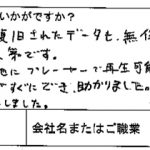 いかがですか？
復旧されたデータも、無傷
第です。
他にプレーヤーで再生可能
がすぐにでき、助かりました。
しました。
会社名またはご職業